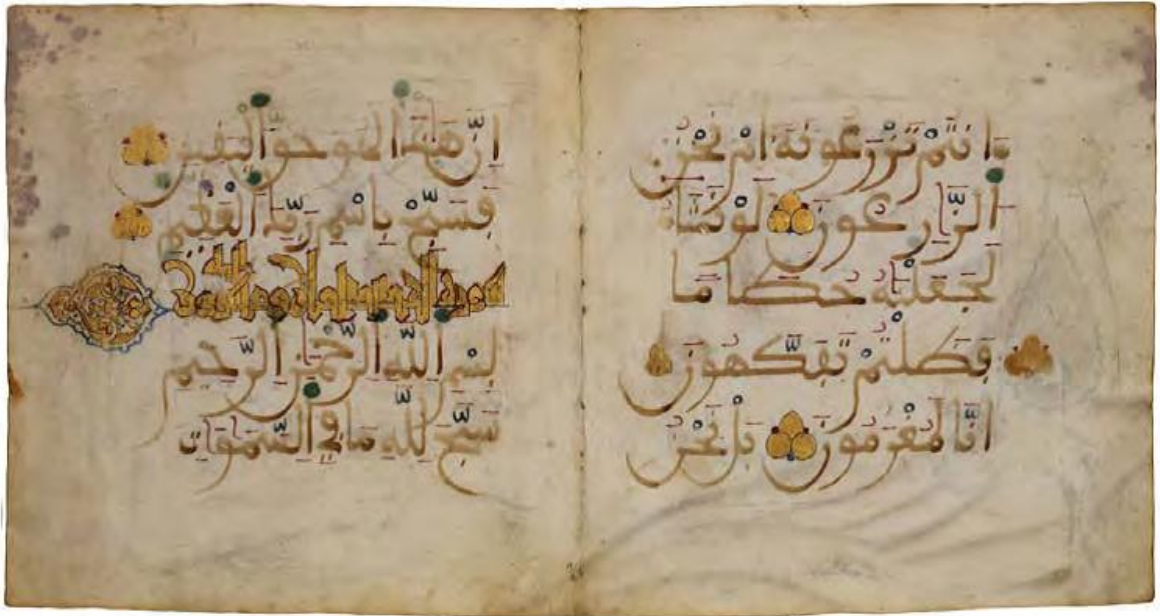 ءَانتُمْ تَزْرَعُونَهُ أَمْ نَحْنُ
الزَّارِعُونَ لَوْ نَشَاءُ
لَجَعَلْنَٰهُ حُطَامًا
فَظَلْتُمْ تَفَكَّهُونَ
إِنَّا لَمُغْرَمُونَ بَلْ نَحْنُ
إِنَّ هَٰذَا لَهُوَ حَقُّ الْيَقِينِ
فَسَبِّحْ بِاسْمِ رَبِّكَ الْعَظِيمِ
سورة الحديد
بِسْمِ اللَّهِ الرَّحْمَٰنِ الرَّحِيمِ
سَبَّحَ لِلَّهِ مَا فِي السَّمَٰوَٰتِ